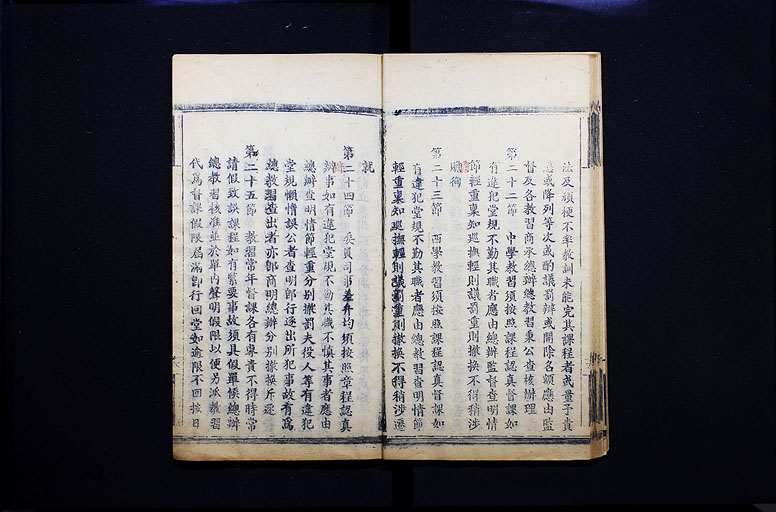 法及頑梗不率教訓未能完其課程者或量予責
懲或降列等次或酌議罰辦或開除名額應由監
督及各教習商承總辦總教習秉公查核辦理
第二十二節　中學教習須按照課程認真督課如
有違犯堂規不勤其職者應由總辦監督查明情
節輕重稟知巡撫輕則議罰重則撤換不得稍涉
瞻徇
第二十三節　西學教習須按照課程認真督課如
有違犯堂規不勤其職者應由總教習查明情節
輕重稟知巡撫輕則議罰重則撤換不得稍涉遷
就
第二十四節　委員司事差弁均須按照章程認真
辦事如有違犯堂規不勤其職不慎其事者應由
總辦查明情節輕重分別撤罰夫役人等有違犯
堂規懶惰誤公者查明卽行逐出所犯事故有為
總教習查出者亦卽商明總辦分別撤換斥逐
第二十五節　教習常年督課各有專責不得時常
請假致誤課程如有緊要事故須具假單候總辦
總教習核准並於單內聲明假限以便另派教習
代為督課假限屆滿卽行回堂如逾限不回按日